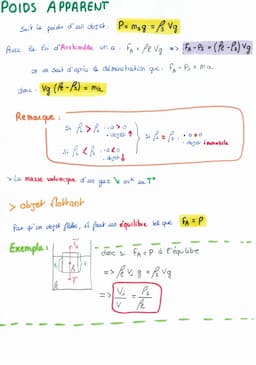 POIDS APPARENT
Soit le poids d'un objet: P = m₀g = ρₛVg
Avec la loi d'Archimède on a: F_A = ρ_ℓVg => F_A - P_s = (ρ_ℓ - ρ_s)Vg
or on sait d'après la démonstration que: F_A - P_s = ma
donc: Vg(ρ_ℓ - ρ_s) = ma
Remarque:
Si ρ_ℓ > ρ_s .. a > 0
. objet ↑
Si ρ_ℓ = ρ_s .. a = 0
. objet immobile
Si ρ_ℓ < ρ_s .. a < 0
. objet ↓
> La masse volumique d'un gaz ↘ or T°
> objet flottant
Pour qu'un objet flotte, il faut un équilibre tel que F_A = P
Exemple:
donc si F_A = P à l'équilibre
=> ρ_ℓ V_i g = ρ_s Vg
=> V_i / V = ρ_s / ρ_ℓ